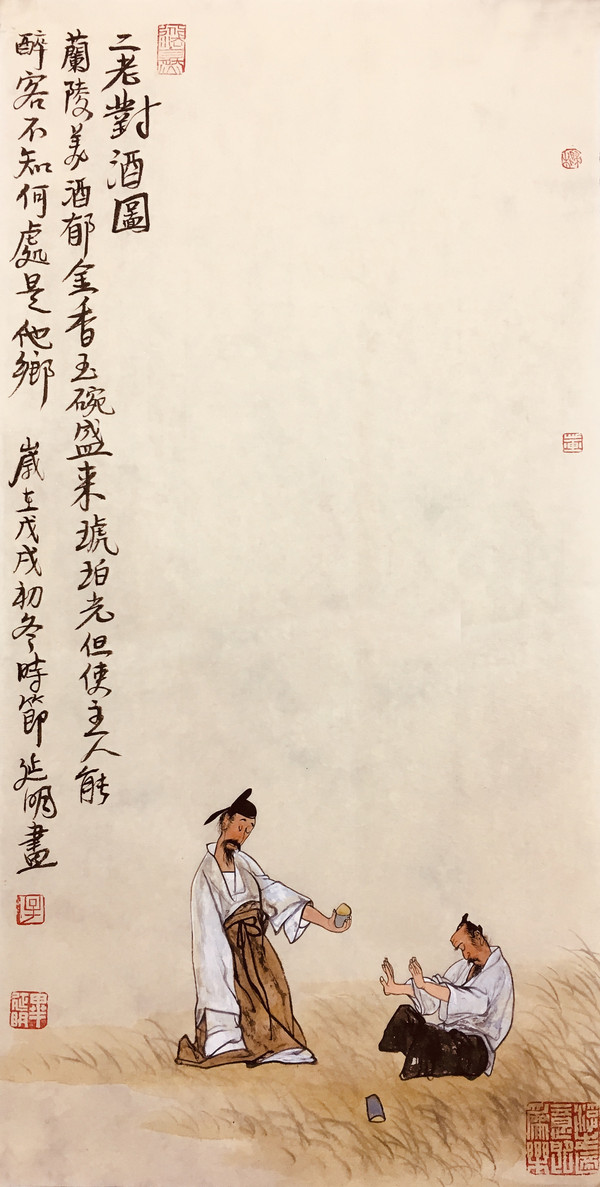 二老對酒圖
蘭陵美酒郁金香玉碗盛来琥珀光但使主人能
醉客不知何處是他鄉 歲在戊戌初冬時節延明畫
畢延明